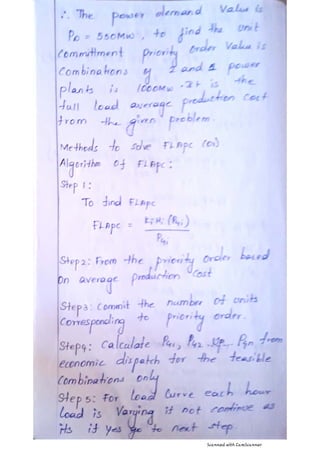 ∴ The power demand value is
PD = 550MW, to find the unit
Committment priority order value is
Combinations of 2 and 1 power
plants is 1000MW. It is the
full load average production cost
from the given problem.
Methods to solve FLAPC (or)
Algorithm Of FLAPC:
Step 1:
To find FLAPC
FLAPC = KiHi (Pgi) / Pgi
Step2: From the priority order based
on average production cost
Step3: Commit the number of units
Corresponding to priority order.
Step4: Calculate PG1, PG2 ... Pgn from
economic dispatch for the feasible
Combinations only
Step 5: For load Curve each hour
load is Varying if not continue as
its if yes go to next step
Scanned with CamScanner